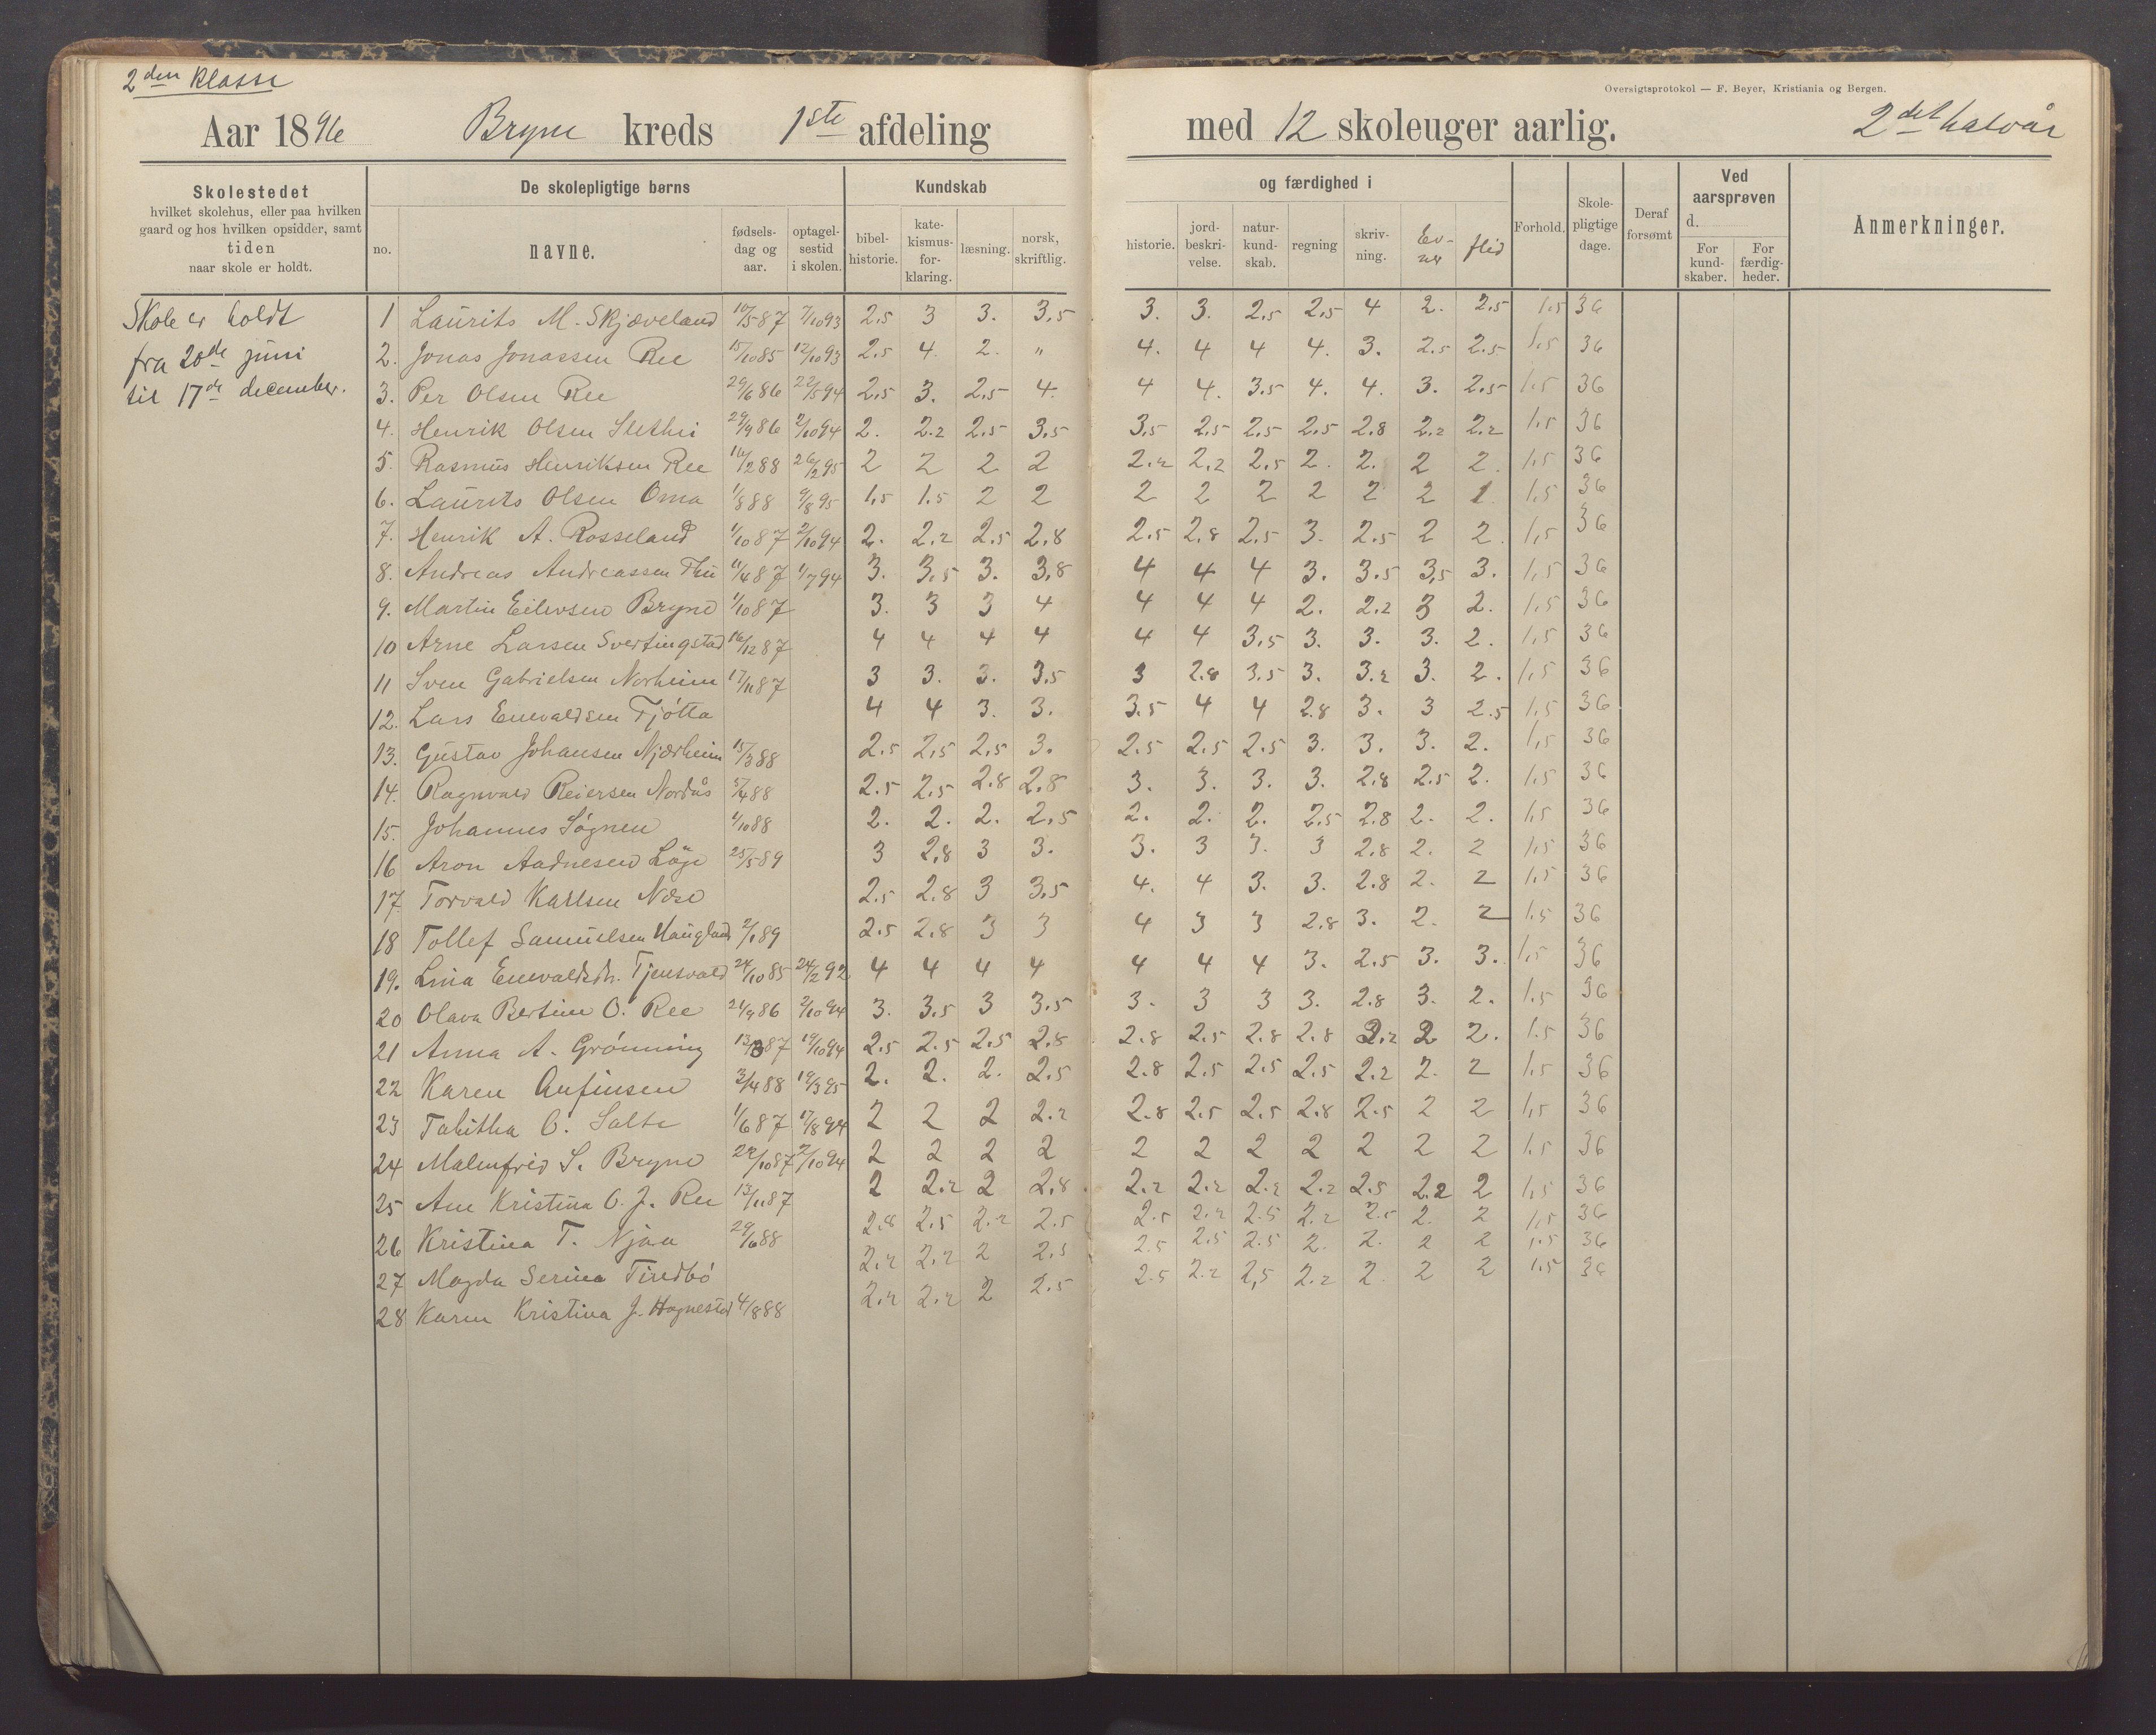 2den Klasse
Oversigtsprotokol — F. Beyer, Kristiania og Bergen.
Aar 1896 Bryne kreds 1ste afdeling med 12 skoleuger aarlig. 2det halvår
Skolestedet
hvilket skolehus, eller paa hvilken
gaard og hos hvilken opsidder, samt
tiden
naar skole er holdt.
De skolepligtige børns
no. navne. fødsels-dag og aar. optagel-sestid i skolen.
Kundskab og færdighed i
bibel-historie. kate-kismus-for-klaring. læsning. norsk, skriftlig. historie. jord-beskri-velse. natur-kund-skab. regning skriv-ning. Ev-ner flid
Forhold. Skole-pligtige dage. Deraf forsømt
Ved aarsprøven d.
For kund-skaber. For færdig-heder.
Anmerkninger.
Skole er holdt
fra 20de juni
til 17de december.
1 Laurits M. Skjæveland 10/5 87 7/10 93 2,5 3 3. 3,5 3. 3. 2,5 2,5 4 2. 2,5 1,5 36
2. Jonas Jonassen Ree 15/10 85 12/10 93 2,5 4. 2. " 4. 4 4 4. 3. 2,5 2,5 1,5 36
3. Per Olsen Ree 29/6 86 22/5 94 2,5 3. 2,5 4. 4 4. 3,5 4. 4. 3. 2,5 1,5 36
4. Henrik Olsen 29/9 86 2/10 94 2. 2.2 2,5 3,5 3,5 2,5 2,5 2,5 2,8 2,2 2,2 1,5 36
5. Rasmus Henriksen Ree 16/2 88 26/2 95 2 2 2 2 2,2 2,2 2,5 2. 2. 2 2. 1,5 36
6. Laurits Olsen Oma 1/8 88 9/8 95 1,5 1.5 2 2 2 2 2 2 2 2 1 1,5 36
7. Henrik A. Rosseland 1/10 87 2/10 94 2. 2,2 2,5 2,8 2.5 2,8 2,5 3. 2.5 2 2. 1,5 36
8. Andreas Andreassen Thu 11/4 87 1/7 94 3. 3,5 3. 3,8 4 4 4 3. 3.5 3,5 3. 1,5 36
9. Martin Eilevsen Bryne 1/10 87 3. 3 3 4 4 4 4 2. 2.2 3 2. 1,5 36
10 Arne Larsen Svertingstad 16/12 87 4 4 4 4 4 4 3,5 3. 3. 3. 2. 1,5 36
11 Sven Gabrielsen Norheim 17/11 87 3 3. 3. 3,5 3 2.8 3,5 3. 3.2 3. 2. 1,5 36
12. Lars Enevaldsen Tjøtta 4 4 3. 3. 3.5 4 4 2.8 3. 3 2.5 1,5 36
13. Gustav Johansen Njærheim 15/3 88 2.5 2,5 2,5 3. 2.5 2.5 2.5 3. 3. 3. 2. 1,5 36
14. Ragnvald Reiersen Nordås 5/4 88 2.5 2,5 2.8 2,8 3. 3. 3. 3. 2.8 2.5 2. 1.5 36
15. Johannes Søgnen 4/10 88 2. 2. 2. 2,5 2. 2. 2. 2,5 2.8 2. 2. 1,5 36
16 Aron Aadnesen Løge 25/5 89 3 2,8 3 3. 3. 3 3. 3 2.8 2. 2 1,5 36
17. Torvald Karlsen Næse 2.5 2.8 3 3,5 4. 4 3. 3. 2.8 2. 2 1,5 36
18 Tollef Samuelsen Haugland 2/1 89 2.5 2.8 3 3 4 3 3 2.8 3. 2. 2 1.5 36
19. Lina Enevaldsdtr. Tjensvold 24/10 85 24/2 92 4 4 4 4 4 4 4 3. 2.5 3. 3. 1,5 36
20 Olava Bertine O. Ree 21/9 86 2/10 94 3. 3,5 3 3,5 3. 3 3 3. 2.8 3. 2. 1.5 36
21 Anna A. Grønning 13/3 87 19/10 94 2.5 2.5 2.5 2.8 2.8 2.5 2.8 2.8 2.2 2 2. 1.5 36
22 Karen Anfinsen 3/4 88 19/3 95 2. 2. 2. 2.5 2.8 2.5 2.5 2.5 2.2 2. 2 1.5 36
23 Tabitha O. Salte 1/6 87 17/8 94 2 2 2 2.2 2.8 2.5 2.5 2.8 2.5 2 2 1,5 36
24 Malenfrid S. Bryne 22/10 87 2/10 94 2 2 2 2 2 2 2 2 2 2 2 1.5 36
25 Ane Kristina O. J. Ree 13/11 87 2 2.2 2 2,8 2.2 2.2 2.2 2.2 2.5 2.2 2 1,5 36
26 Kristina T. Njaa 29/6 88 2.8 2.5 2.2 2.5 2.5 2.2 2.5 2.2 2.5 2. 2 1,5 36
27 Magda Serina Tiredbø 2.2 2.2 2 2.5 2.5 2.5 2.5 2. 2. 2 2 1.5 36
28 Karen Kristina J. Hognestad 4/8 88 2.2 2.2 2 2.5 2.5 2.2 2,5 2.2 2. 2 2 1.5 36